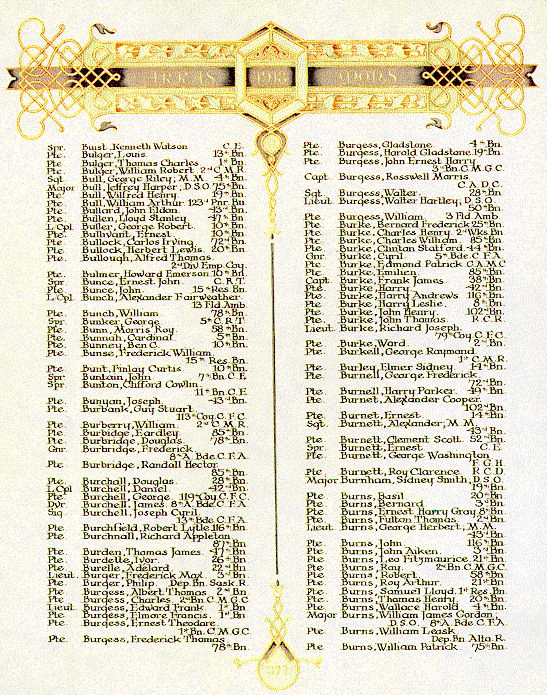 ARRAS 1918 MONS
Spr. Buist, Kenneth Watson C.E.
Pte. Bulger, Louis. 13th Bn.
Pte. Bulger, Thomas Charles 1st Bn.
Pte. Bulger, William Robert 2nd C.M.R.
Sgt Bull, George Riley; M.M. 4th Bn.
Major Bull, Jeffrey Harper; D.S.O. 75th Bn.
Pte. Bull, Wilfred Henry. 19th Bn.
Pte. Bull, William Arthur 123rd Pnr. Bn.
Pte. Bullard, John Eldon. 43rd Bn.
Pte. Bullen, Lloyd Stanley 47th Bn.
L Cpl Buller, George Robert 10th Bn.
Pte. Bullivant, Ernest 10th Bn.
Pte. Bullock, Carlos Irving 72nd Bn.
Pte. Bullock, Herbert Lewis. 20th Bn.
Pte. Bullough, Alfred Thomas
2nd Div. Emp. Coy.
Pte. Bulmer, Howard Emerson 10th Bn.
Spr. Bunce, Ernest John C.R.T.
Pte. Bunce, John 15th Res. Bn.
L Cpl. Bunch, Alexander Fairweather
13 Fld. Amb.
Pte. Bunch, William 78th Bn.
Spr. Bunker, George 5th C.R.T.
Pte. Bunn, Morris Roy 58th Bn.
Pte. Bunnah, Cardinal 5th Bn.
Pte. Bunney, Ben C. 10th Bn.
Pte. Bunse, Frederick William
15th Res. Bn.
Pte. Bunt, Finlay Curtis 10th Bn.
Spr. Buntain, John 7th Bn. C.E.
Spr. Bunton, Clifford Cowlin
11th Bn. C.E.
Pte. Bunyan, Joseph 43rd Bn.
Pte. Burbank, Guy Stuart
113th Coy. C.F.C.
Pte. Burberry, William. 2nd C.M.R.
Pte. Burbidge, Eardley 85th Bn.
Pte. Burbidge, Douglas 78th Bn.
Gnr Burbridge, Frederick
8th A. Bde. C.F.A.
Pte. Burbridge, Randall Hector
85th Bn.
Pte. Burchall, Douglas 28th Bn.
L Cpl Burchell, Daniel 42nd Bn.
Pte. Burchell, George 119th Coy. C.F.C.
Dvr. Burchell, James 8th A. Bde. C.F.A.
Sig. Burchell, Joseph Cyril
13th Bde. C.F.A.
Pte. Burchfield, Robert Lytle 116th Bn.
Pte. Burchnall, Richard Appleton
87th Bn.
Pte. Burden, Thomas James 47th Bn.
Pte. Burdette, Ivor 26th Bn.
Pte. Burelle, Adelard 22nd Bn.
Lieut. Burger, Frederick Max 3rd Bn.
Pte. Burger, Philip Dep. Bn. Sask. R.
Pte. Burgess, Albert Thomas 2nd Bn.
Pte. Burgess, Charles 2nd Bn. C.M.G.C.
Lieut. Burgess, Edward Frank. 1st Bn.
Pte. Burgess, Elmore Francis. 1st Bn.
Pte. Burgess, Ernest Theodare.
1st Bn. C.M.G.C.
Pte. Burgess, Frederick Thomas
78th Bn.
Pte. Burgess, Gladstone 4th Bn.
Pte. Burgess, Harold Gladstone 19th Bn.
Pte. Burgess, John Ernest Harry
3rd Bn. C.M.G.C.
Capt. Burgess, Rosswell Morris
C.A.D.C.
Sgt Burgess, Walter. 28th Bn.
Lieut Burgess, Walter Hartley; D.S.O.
50th Bn.
Pte. Burgess, William 3 Fld. Amb.
Pte. Burke, Bernard Frederick 25th Bn.
Pte. Burke, Charles Henry. 2nd Wks. Bn.
Pte. Burke, Charles William 85th Bn.
Pte. Burke, Clinton Stafford 44th Bn.
Gnr. Burke, Cyril 5th Bde. C.F.A.
Pte. Burke, Edmond Patrick C.A.M.C
Pte. Burke, Emilien. 85th Bn.
Capt. Burke, Frank James 38th Bn.
Pte. Burke, Harry 42nd Bn.
Pte. Burke, Harry Andrews 116th Bn.
Pte. Burke, Harry Leslie. 8th Bn.
Pte. Burke, John Henry. 102nd Bn.
Pte. Burke, John Thomas R.C.R.
Lieut. Burke, Richard Joseph.
79th Coy. C.F.C.
Pte. Burke, Ward. 2nd Bn.
Pte. Burkell, George Raymond
1st C.M.R.
Pte. Burley, Elmer Sidney 14th Bn.
Pte. Burnell, George Frederick
72nd Bn.
Pte. Burnell, Harry Parker 49th Bn.
Pte. Burnet, Alexander Cooper.
102nd Bn.
Pte. Burnet, Ernest 14th Bn.
Sgt. Burnett, Alexander; M.M.
43rd Bn.
Pte. Burnett, Clement Scott. 52nd Bn.
Spr. Burnett, Ernest C.E.
Pte. Burnett, George Washington
F.G.H.
Pte. Burnett, Roy Clarence R.C.D.
Major Burnham, Sidney Smith; D.S.O.
19th Bn.
Pte. Burns, Basil 20th Bn.
Pte. Burns, Bernard 3rd Bn.
Pte. Burns, Ernest Harry Gray 8th Bn.
Pte. Burns, Fulton Thomas 2nd Bn.
Lieut. Burns, George Herbert; M.M.
43rd Bn.
Pte. Burns, John 116th Bn.
Pte. Burns, John Aiken. 3rd Bn.
Pte. Burns, Leo Fitzmaurice 21st Bn.
Pte. Burns, Ray. 2nd Bn. C.M.G.C.
Pte. Burns, Robert 58th Bn.
Pte. Burns, Roy Arthur 21st Bn.
Pte. Burns, Samuel Lloyd. 1st Res. Bn.
Pte. Burns, Thomas Henry. 20th Bn.
Pte. Burns, Wallace Harold 4th Bn.
Major Burns, William James Gordon;
D.S.O. 8th A. Bde. C.F.A.
Pte. Burns, William Leask
Dep. Bn. Alta. R.
Pte. Burns, William Patrick 75th Bn.
377